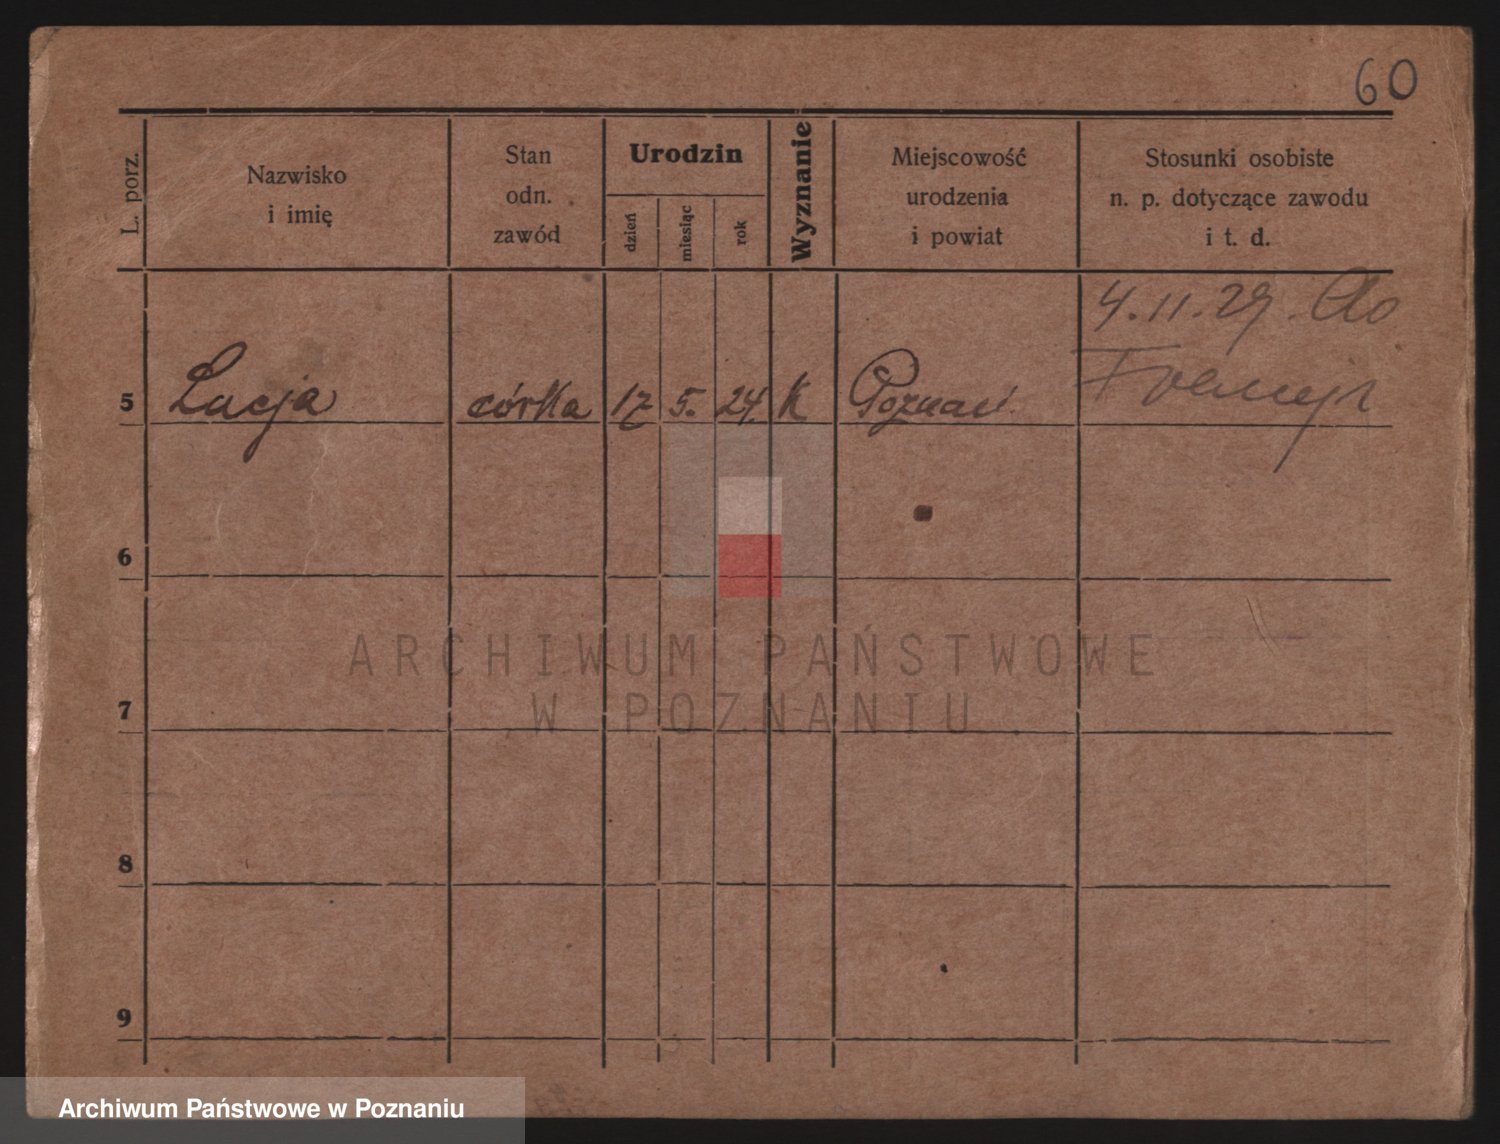 60
L. porz.
Nazwisko
i imię
Stan
odn.
zawód
Urodzin
dzień
miesiąc
rok
Wyznanie
Miejscowość
urodzenia
i powiat
Stosunki osobiste
n. p. dotyczące zawodu
i t. d.
4.11.29. do
5 Łucja córka 17 5. 24. K Poznań Francji
6
7
8
9
ARCHIWUM PAŃSTWOWE
W POZNANIU
Archiwum Państwowe w Poznaniu